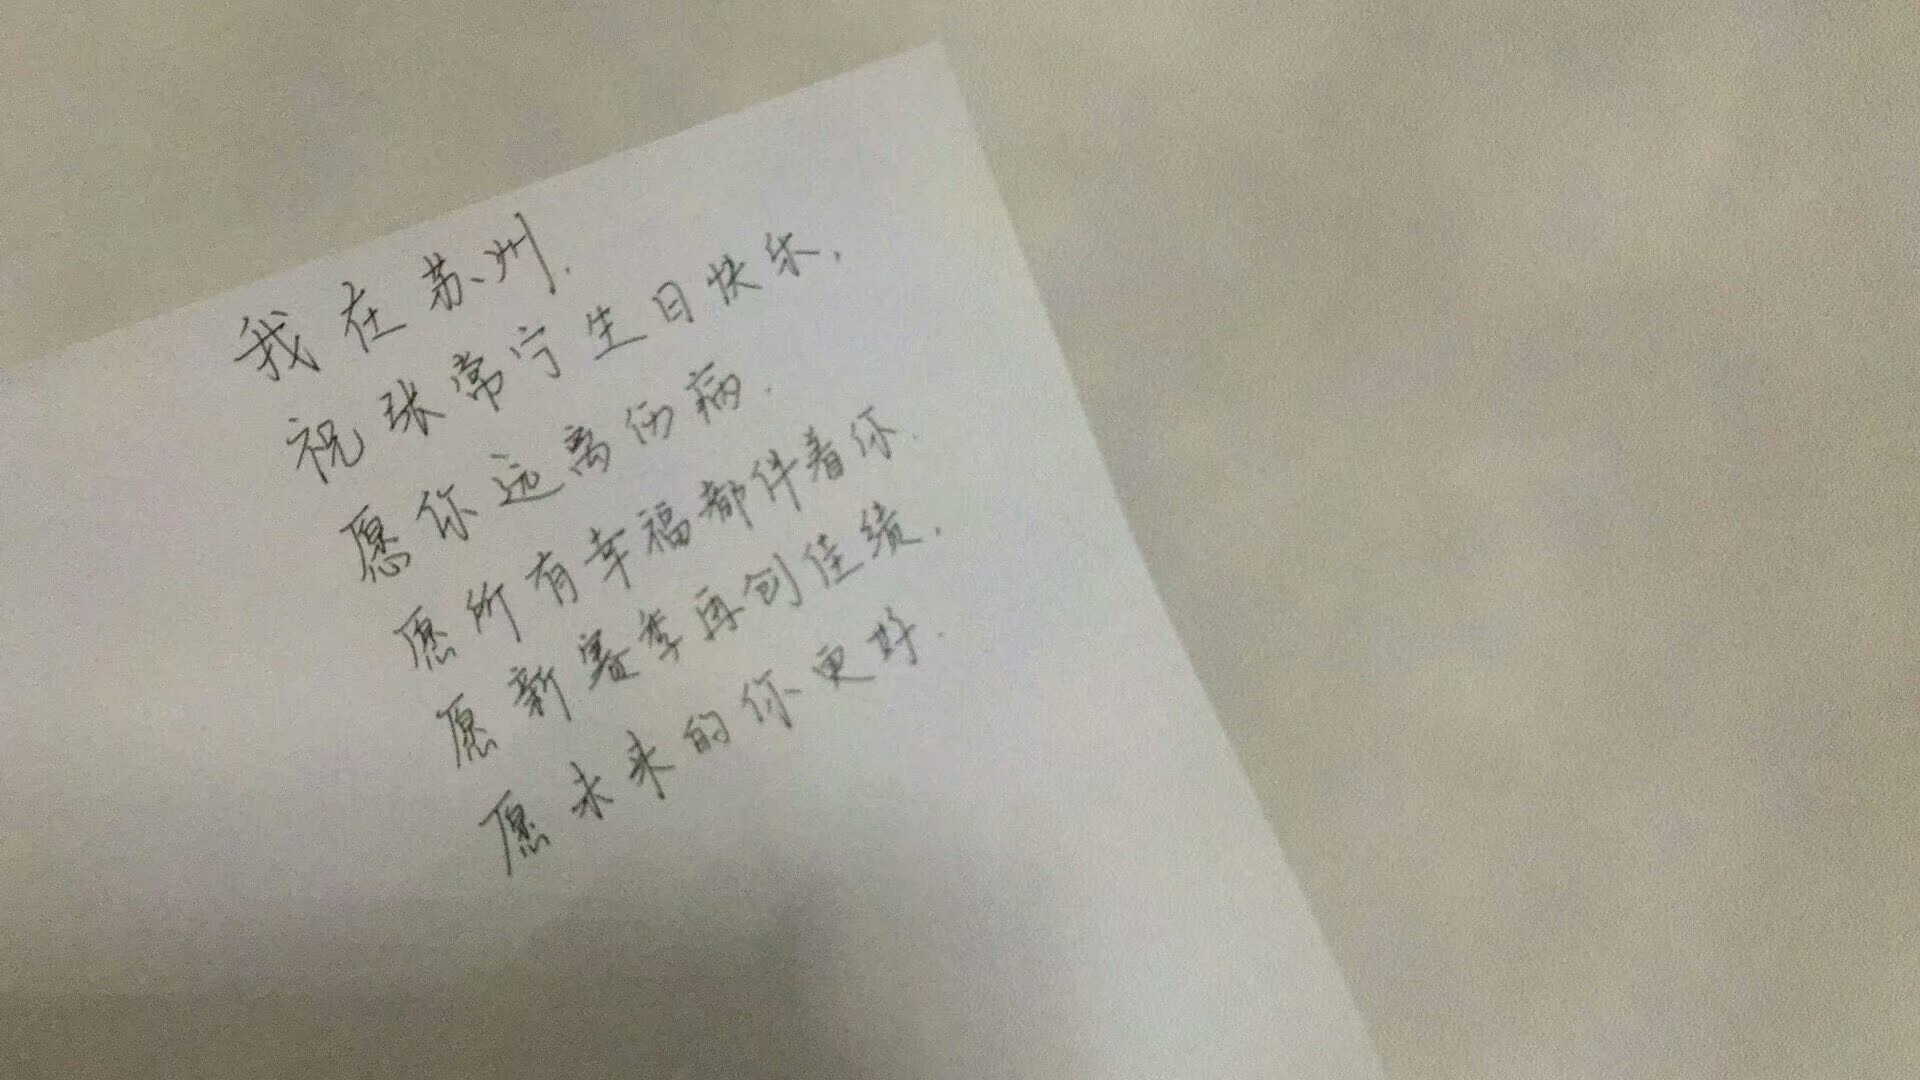 我在苏州.
祝张常宁生日快乐.
愿你远离伤病.
愿所有幸福都伴着你.
愿新赛季再创佳绩.
愿未来的你更好.